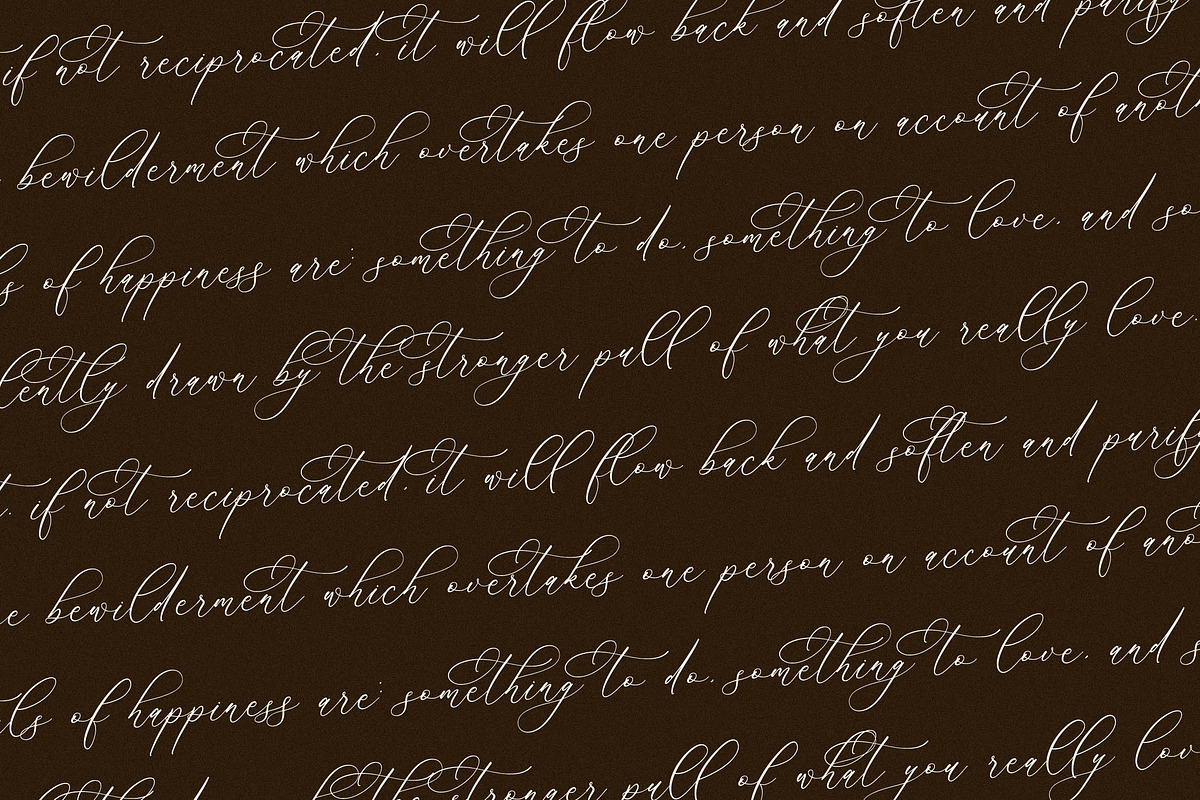 if not reciprocated, it will flow back and soften and purify
bewilderment which overtakes one person on account of anot
ls of happiness are: something to do, something to love, and so
lently drawn by the stronger pull of what you really love.
t, if not reciprocated, it will flow back and soften and purify
e bewilderment which overtakes one person on account of ano
als of happiness are: something to do, something to love, and s
the stronger pull of what you really lov